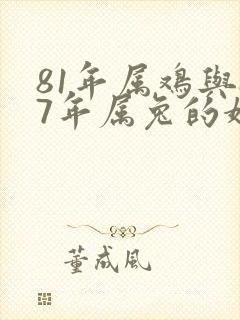 81年属鸡與
7年属兔的
董成风